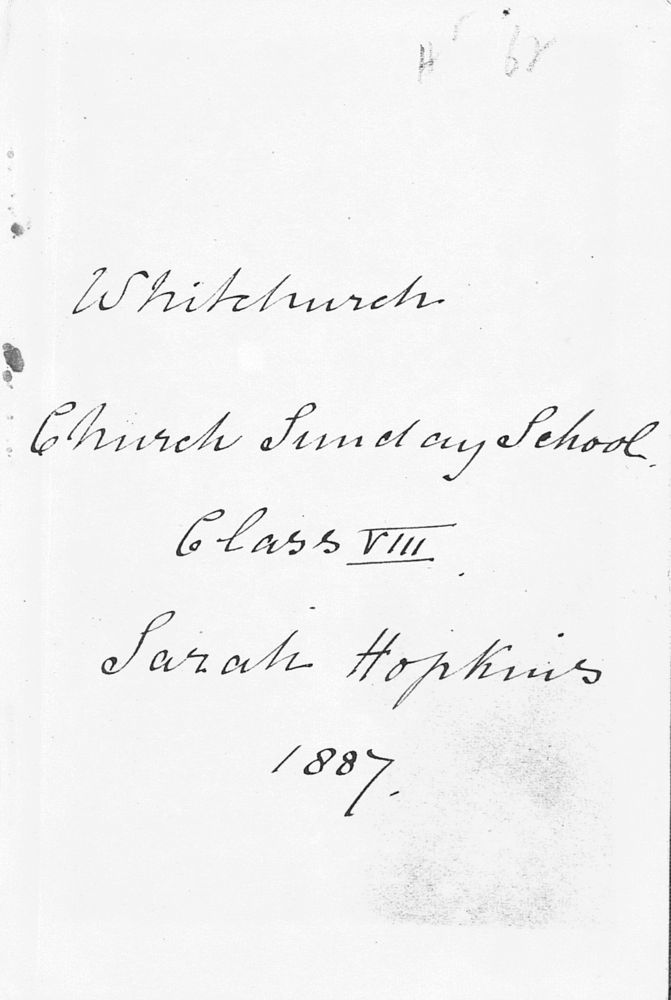 Whitchurch
Church Sunday School.
Class VIII.
Sarah Hopkins
1887.